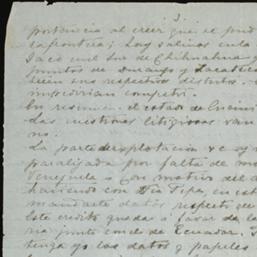 3.
portancia al creer que el pud
la frontera; Las salinas en la
Jaco en el Sur de Chihuahua y
puntos de Durango y Zacatec
en sus respectivos distritos.
impedirian competir.
En resumen el estado de
las cuestiones litigiosas van
no.
La parte de esplotacion &c
paralizada por falta de
Venezuela o con motivo del
haciendo con Tio Tipa, en est
mandarte datos respecto de
Este credito queda a favor de la
na junto con el de Ecuador.
tenga yo los datos y papeles